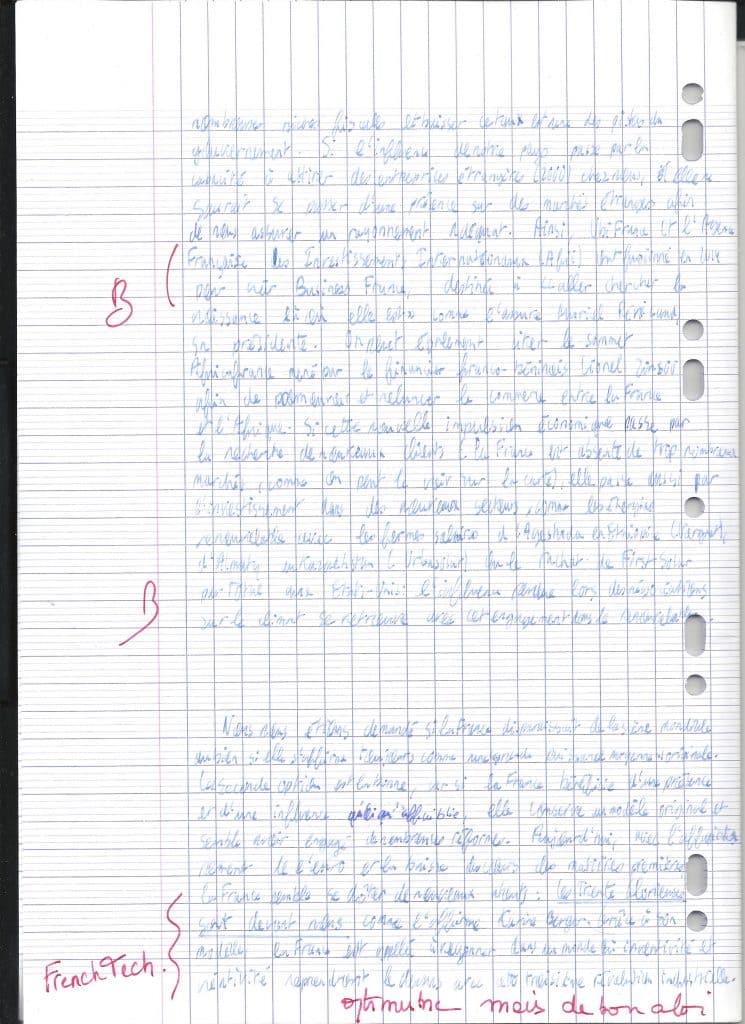 nombreuses niches fiscales et baisser ce taux est une des pistes du
gouvernement. Si l'influence de notre pays passe par la
capacité à attirer des entreprises étrangères chez nous, elle ne
saurait se passer d'une présence sur des marchés étrangers afin
de nous assurer un rayonnement. Ainsi, UbiFrance et l'Agence
Française des Investissements Internationaux (Afii) ont fusionné en
pour créer Business France, destinée à aller chercher la
croissance là où elle est comme l'assure Muriel Pénicaud,
sa présidente. On peut également citer le sommet
Africafrance mené par le financier franco-béninois Lionel Zinsou
afin de et relancer le commerce entre la France
et l'Afrique. Si cette nouvelle impulsion économique passe par
la recherche de nouveaux clients (la France est absente de trop nombreux
marchés, comme on peut le voir sur la carte), elle passe aussi par
l'investissement dans des nouveaux secteurs, comme les énergies
renouvelables avec les fermes d'Ashegoda en Ethiopie (Vergnet),
d'Almaty au Kazakhstan ou le rachat de First Solar
par Total aux Etats-Unis : l'influence lors des négociations
sur le climat se retrouve avec cet engagement dans le renouvelable.
B
B
Nous nous étions demandé si la France disparaissait de la scène mondiale
ou bien si elle s'affirme toujours comme une grande puissance moyenne originale.
La seconde option est la bonne, car si la France bénéficie d'une présence
et d'une influence affaiblie, elle conserve un modèle original et
semble avoir engagé de nombreuses réformes. Aujourd'hui, avec l'affaiblis-
sement de l'euro et la baisse des cours des matières premières
la France semble se doter de nouveaux atouts : les Trente Glorieuses
sont devant nous comme l'affirme Karine Berger. Grâce à son
modèle, la France est appelée à rayonner dans un monde où inventivité et
créativité reprendront le dessus avec la troisième révolution industrielle.
French Tech.
optimiste mais de bon aloi